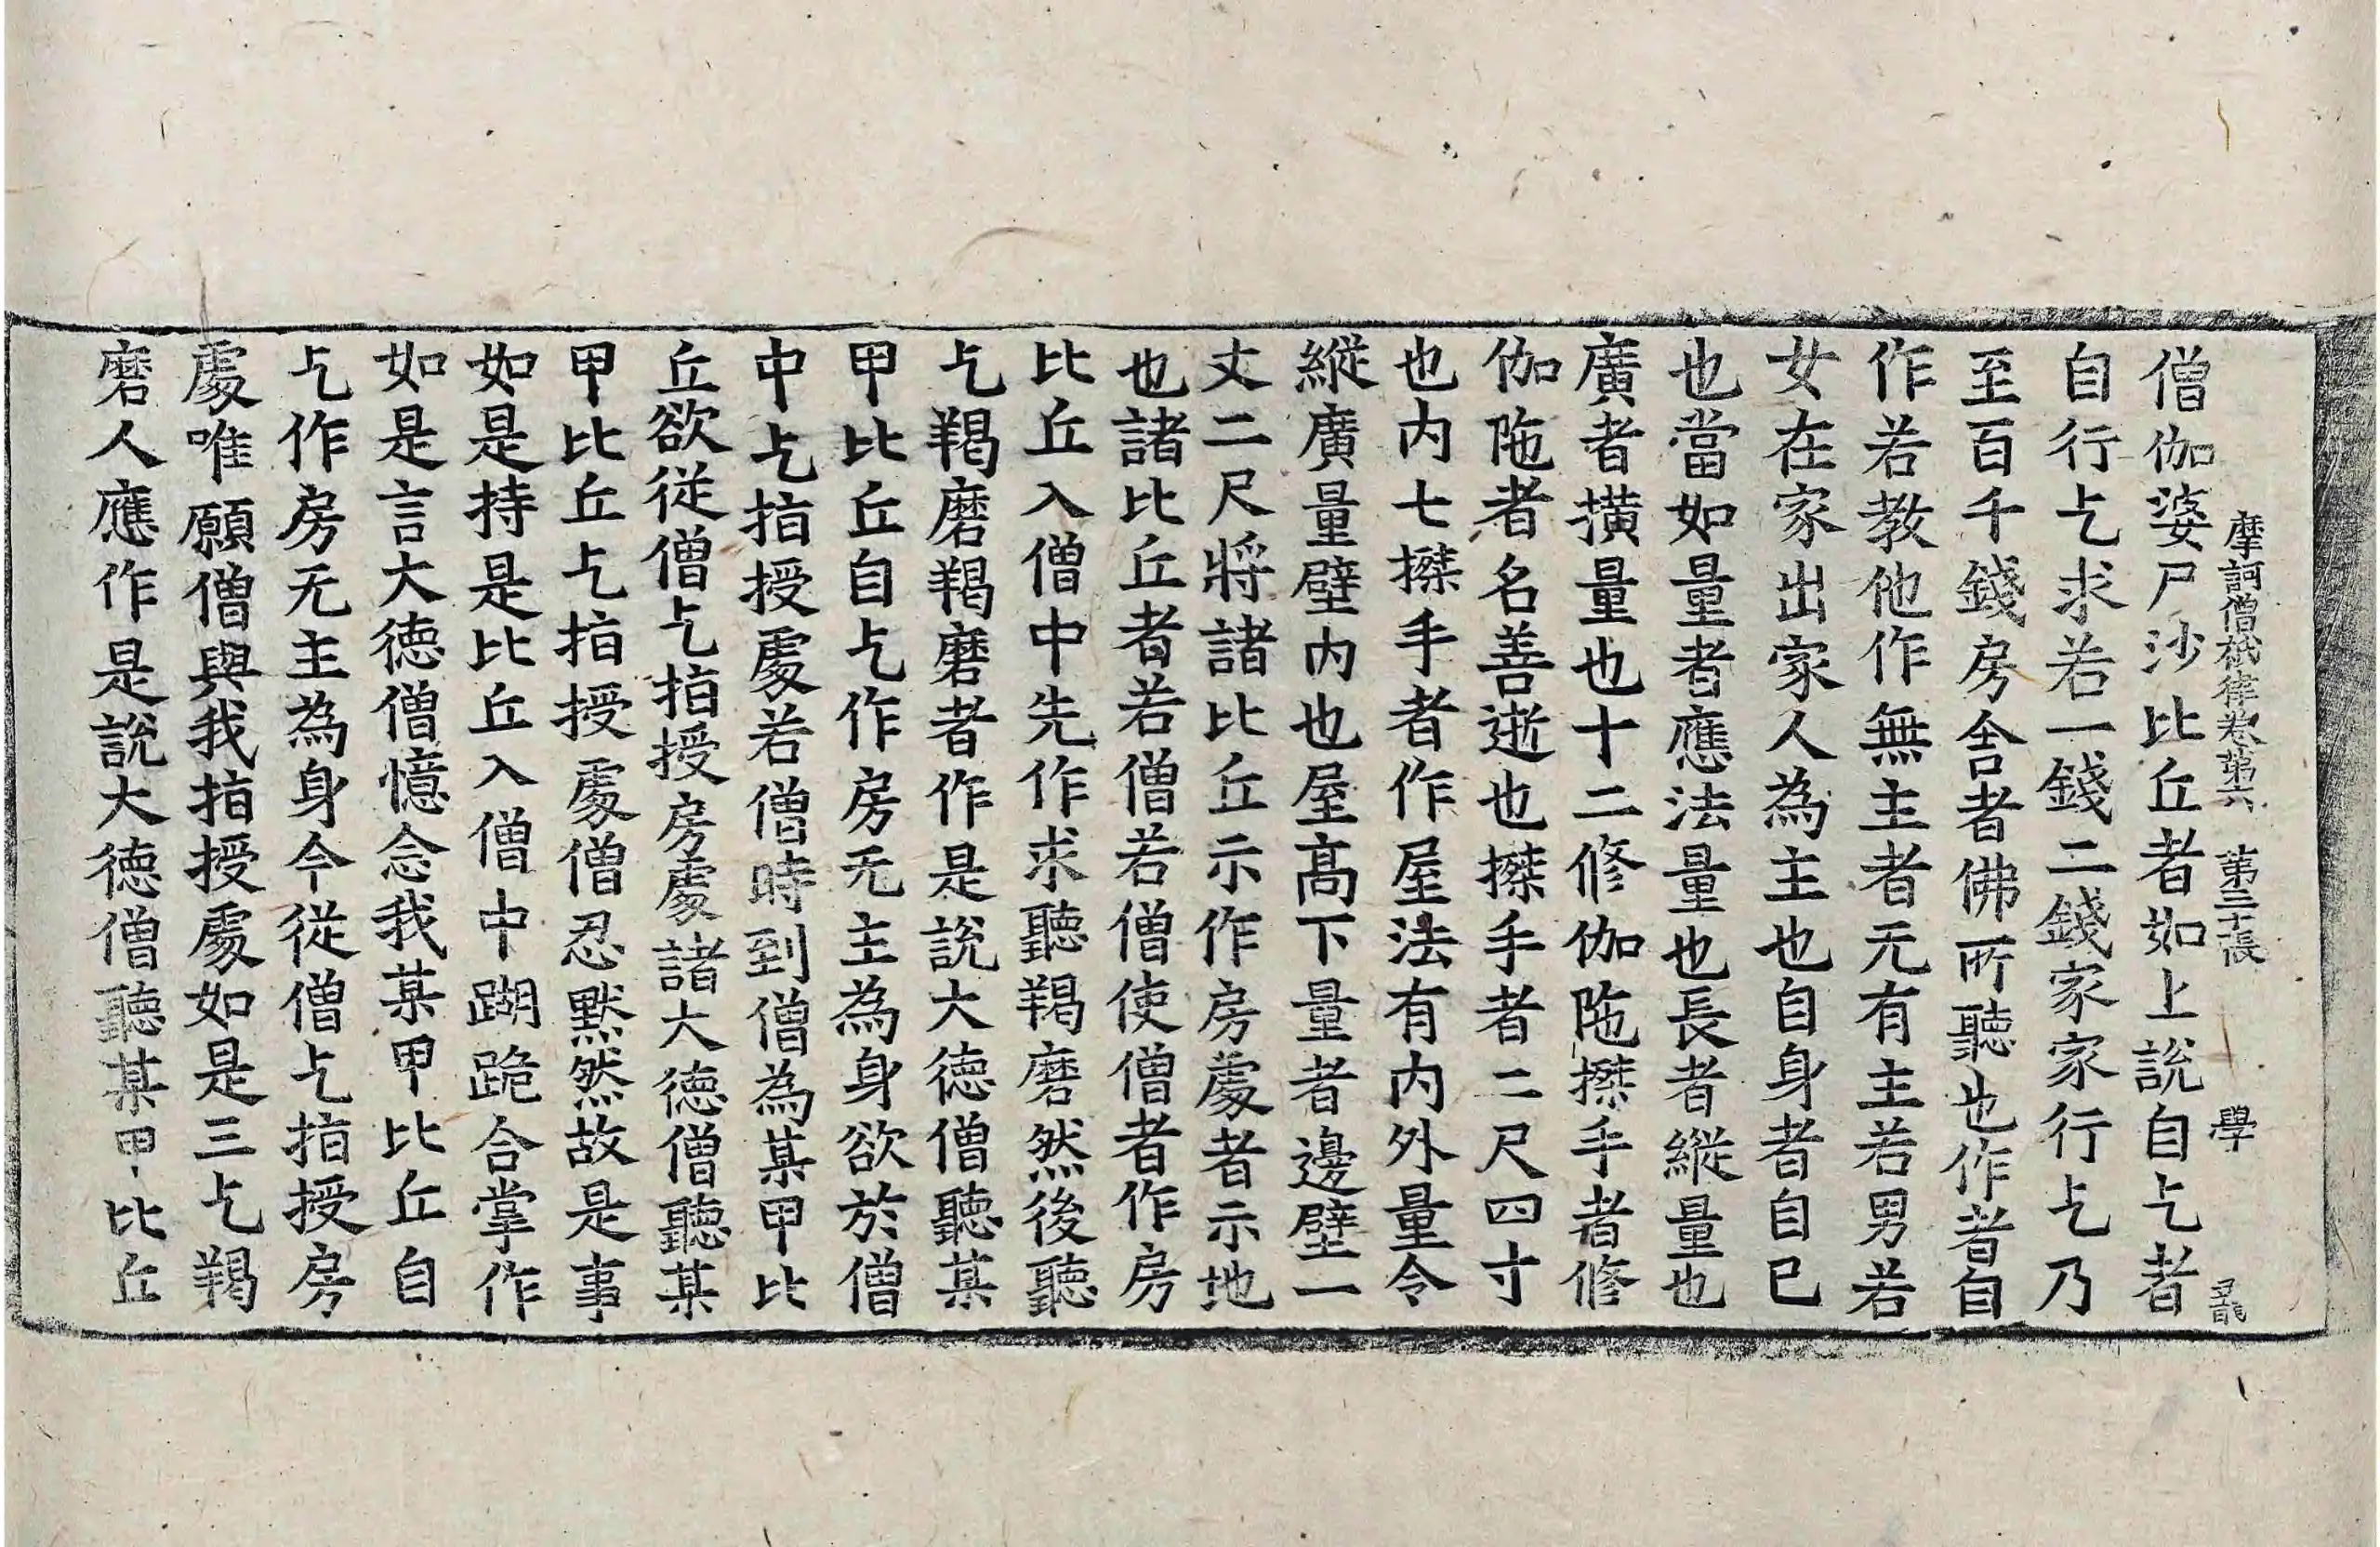 摩訶僧祇律卷第六 第三十張 學
僧伽婆尸沙比丘者如上說自乞者
自行乞求若一錢二錢家家行乞乃
至百千錢房舍者佛所聽也作者自
作若教他作無主者无有主若男若
女在家出家人為主也自身者自已
也當如量者應法量也長者縱量也
廣者撗量也十二修伽陁搩手者修
伽陁者名善逝也搩手者二尺四寸
也內七搩手者作屋法有內外量令
縱廣量壁內也屋髙下量者邊壁一
丈二尺將諸比丘示作房處者示地
也諸比丘者若僧若僧使僧者作房
比丘入僧中先作求聽羯磨然後聽
乞羯磨羯磨者作是說大德僧聽某
甲比丘自乞作房无主為身欲於僧
中乞指授處若僧時到僧為某甲比
丘欲從僧乞指授房處諸大德僧聽某
甲比丘乞指授處僧忍默然故是事
如是持是比丘入僧中𨂐跪合掌作
如是言大德僧憶念我某甲比丘自
乞作房无主為身今從僧乞指授房
處唯願僧與我指授處如是三乞羯
磨人應作是說大德僧聽某甲比丘